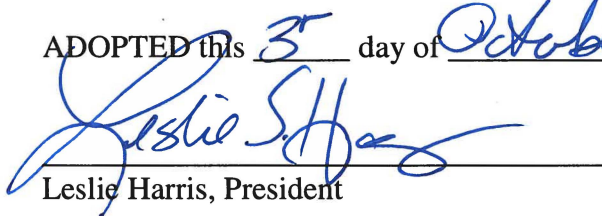 ADOPTED this 3r day of Octob
Leslie S. Har
Leslie Harris, President